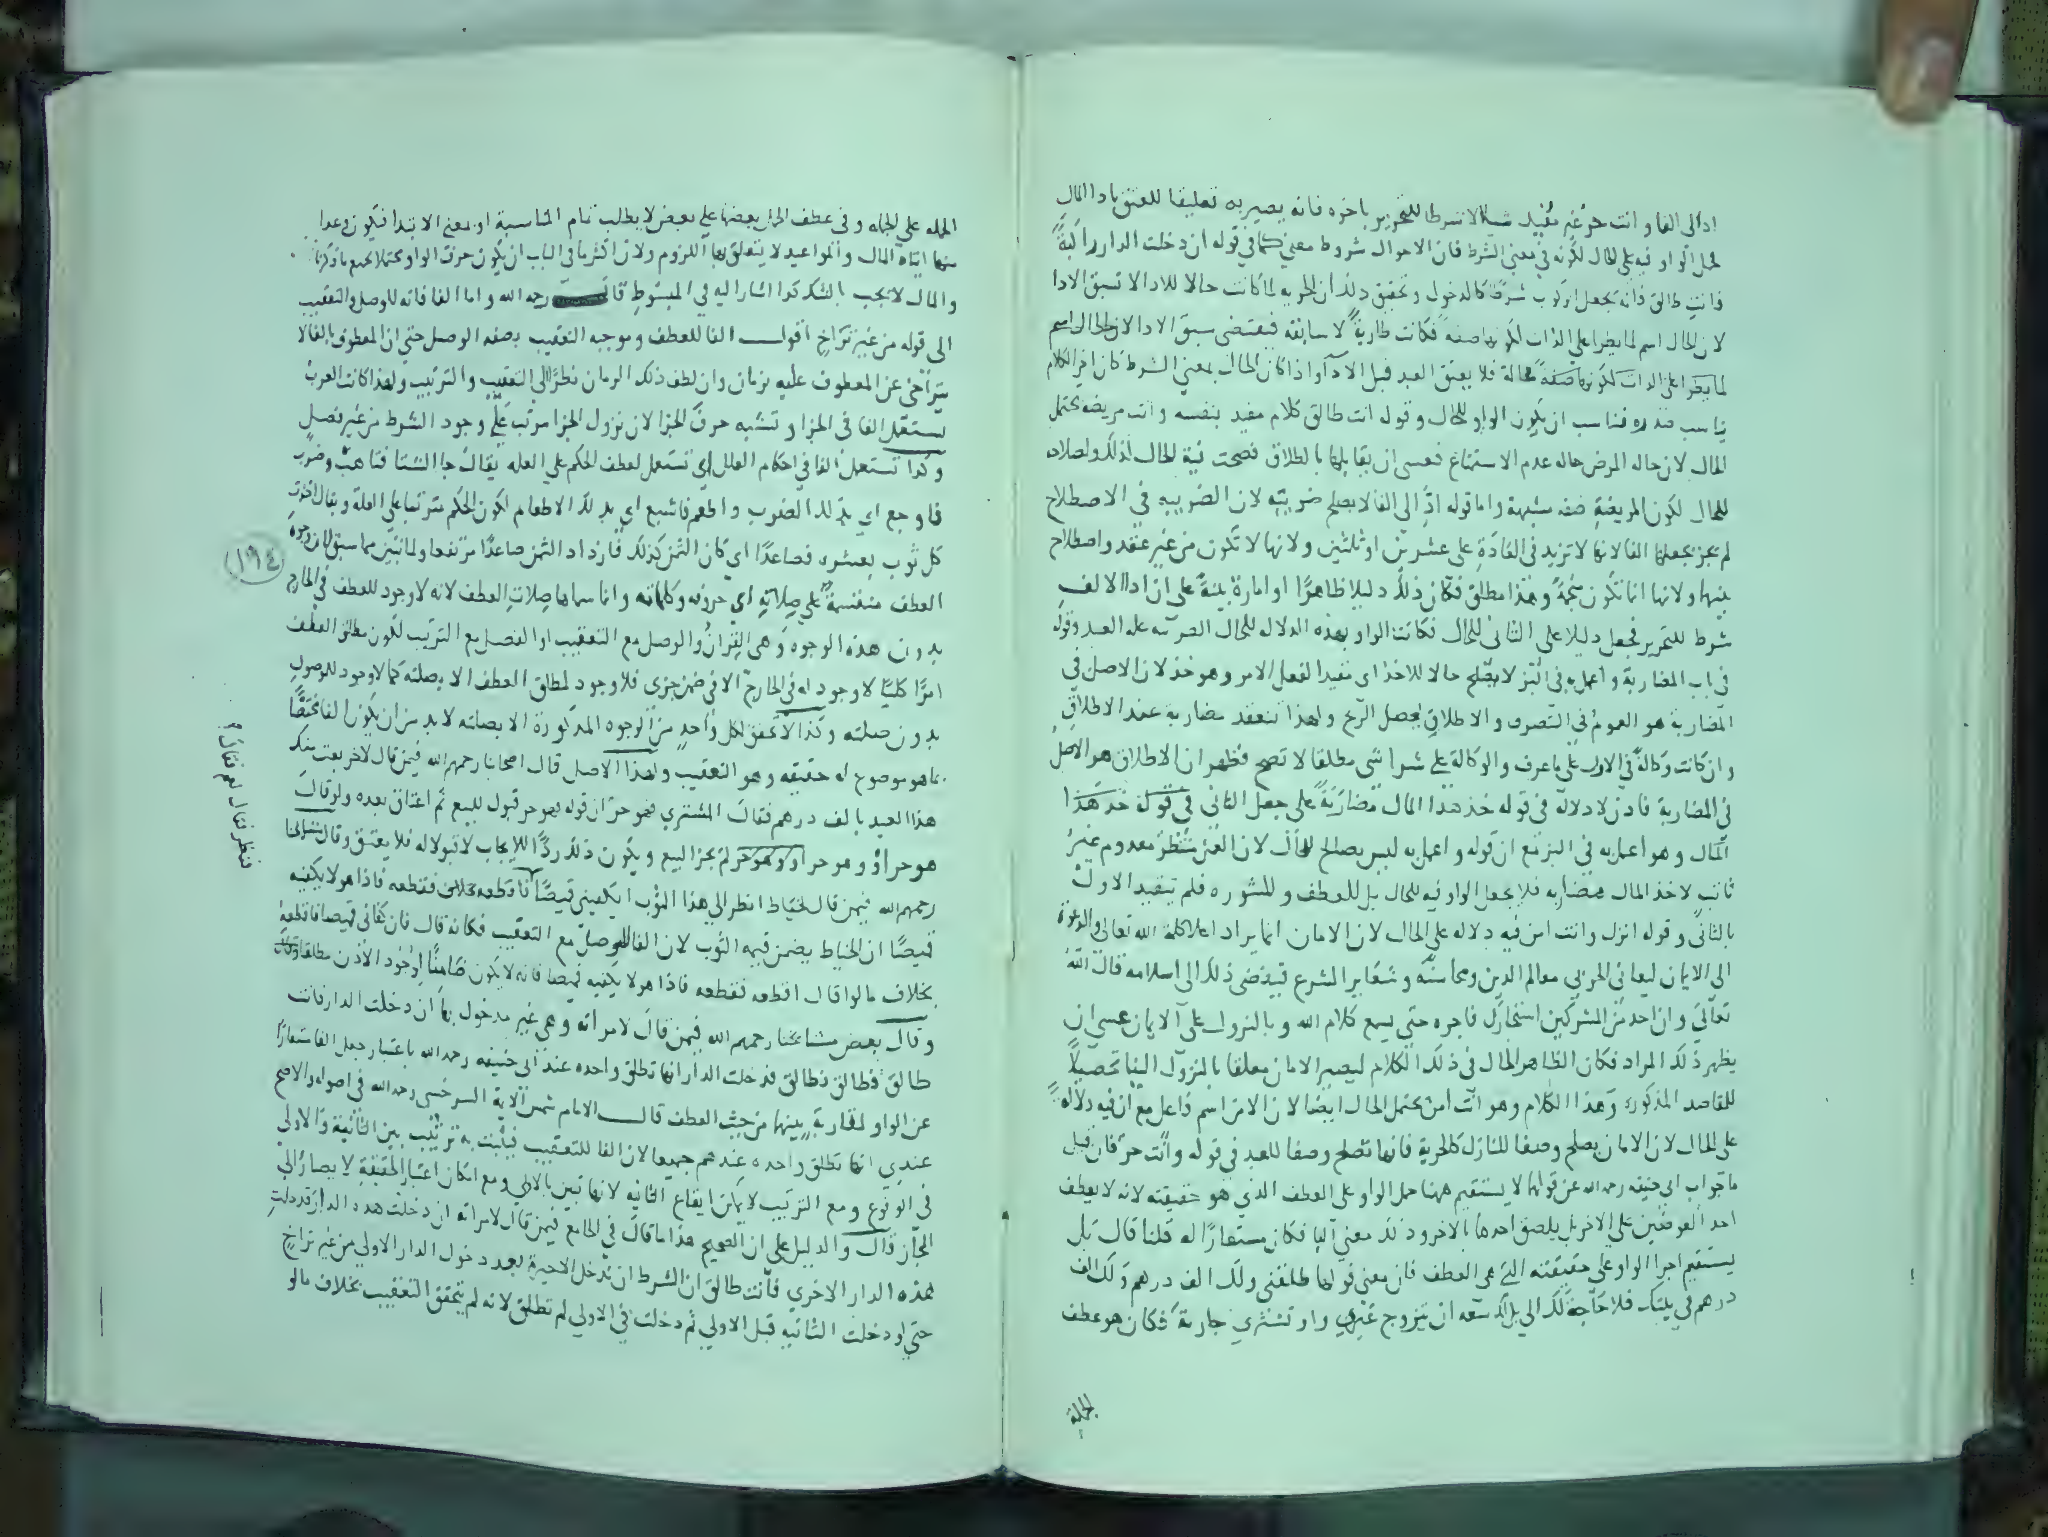 ادالى الفا و انت حر غير مقيد شيئا الا شرطا للتحرير باخره فانه يصير به تعليقا للعتق بادا المال
فحمل الواو فيه على الحال لكونه في معنى الشرط فان الاحوال شروط معنى كما في قوله ان دخلت الدار راكبة
فانت طالق فانه يجعل الركوب شرطا كالدخول و تحقيق ذلك ان الحريه لما كانت حالا للادا لا تسبق الادا
لان الحال اسم لما يطرا على الذات لكونها صفة فكانت طارية لا سابقة فيقتضى سبق الادا لان الحال اسم
لما يطرا على الذات لكونها صفة لا محالة فلا يعتق العبد قبل الادآ واذا كان الحال بمعنى الشرط كان اخر الكلام
يناسب صدره فناسب ان يكون الواو للحال و قوله انت طالق كلام مفيد بنفسه و انت مريضة يحتمل
الحال لان حاله المرض حاله عدم الاستمتاع فعسى ان يقابلها بالطلاق فصحت نية الحال لذلك ولصلاحه
للحال لكون المريضة صفه مشبهة واما قوله ادِّ الى الفا لا يصلح ضريبة لان الضريبه في الاصطلاح
لم يجز بجعلها الفا لانها لا تزيد في العادة على عشرين او ثلثين ولانها لا تكون من غير عقد واصطلاح
بينها ولانها انما تكون منجمة وهذا مطلق فكان ذلك دليلا ظاهرا او امارة بينة على ان ادا الالف
شرط للتحرير فجعل دليلا على الثانى للحال فكانت الواو بهذه الدلاله للحال على العبد وقوله
في باب المضاربة و اعمل به في البز لا يصلح حالا للاخذ اى مقيدا لفعل الامر وهو خذ لان الاصل في
المضاربة هو العموم في التصرف والاطلاق ليحصل الربح ولهذا تنعقد مضاربة عند الاطلاق
وان كانت وكالة في الاول على ما عرف والوكالة على شرا شى مطلقا لا تصح فظهر ان الاطلاق هو الاصل
في المضاربة فاذن لا دلالة في قوله خذ هذا المال مضاربة على جعل الثانى في قوله خذ هذا
المال وهو اعمل به في البز مع ان قوله و اعمل به ليس بصالح للحال لان العمل منتظر معدوم غير
ثابت لاخذ المال مضاربة فلا يجعل الواو فيه للحال بل للعطف و للشوره فلم تتقيد الاول
بالثانى و قوله انزل وانت امن فيه دلاله على الحال لان الامان انما يراد اعلا كلمة الله تعالى والدعوة
الى الايمان ليعاين الحربي معالم الدين ومحاسنه و شعاير الشرع فيفضى ذلك الى اسلامه قال الله
تعالى و ان احد من المشركين استجارك فاجره حتى يسمع كلام الله و بالنزول على الايمان عسى ان
يظهر ذلك المراد فكان الظاهر الحال في ذلك الكلام ليصير الامان معلقا بالنزول الينا تحصيلا
للمقاصد المذكوره و هذا الكلام وهو انت امن يحتمل الحال ايضا لان الامن اسم فاعل مع ان فيه دلالة
على الحال لان الامان يصلح وصفا للنازل كالحرية فانها تصلح وصفا للعبد في قوله وانت حر فان قيل
ما جواب ابي حنيفه رحمه الله عن قولها لا يستقيم ههنا حمل الواو على العطف الذي هو حقيقته لانه لا يعطف
احد العوضين على الاخر بل يلصق احدهما بالاخر وذلك معنى البا فكان مستعارا له قلنا قال بل
يستقيم اجرا الواو على حقيقته التي هى العطف فان معنى قولها طلقنى ولك الف درهم و لك الف
درهم في بيتك فلا حاجة لك الي بل لك سعه ان تتزوج غيري و او تشتري جارية فكان هو عطف
الجملة
الجمله على الجمله و في عطف الجمل بعضها على بعض لا يطلب تمام المناسبة او بمعنى الابتدا فيكون وعدا
منها ايتاه المال والمواعيد لا يتعلق بها اللزوم ولان اكثر ما في الباب ان يكون حرف الواو محتملا لجميع ما ذكرنا
والمال لا يجب بالشك كذا اشار اليه في المبسوط قال رحمه الله واما الفا فانه للوصل والتعقيب
الى قوله من غير تراخ اقول الفا للعطف و موجبه التعقيب بصفه الوصل حتى ان المعطوف بالفا لا
يتراخى عن المعطوف عليه بزمان وان لطف ذلك الزمان نظرا الى التعقيب والترتيب ولهذا كانت العرب
تستعمل الفا في الجزا و تسميه حرف الجزا لان نزول الجزا مرتب على وجود الشرط من غير فصل
وكذا تستعمل الفا في احكام العلل اي تستعمل لعطف الحكم على العله يقال جا الشتا فتاهب وضرب
فاوجع اي بذلك الضرب و اطعم فاشبع اي بذلك الاطعام لكون الحكم مترتبا على العلة و يقال اخذت
كل ثوب بعشره فصاعدا اى كان الثمن كذلك فازداد الثمن صاعدا مرتفعا ولما تبين مما سبق ان وجوه
العطف منقسمة على صلاته اي حروفه وكلماته وانما سماها صلات العطف لانه لا وجود للعطف في الخارج
بدون هذه الوجوه وهى القران والوصل مع التعقيب او الفصل مع الترتيب لكون مطلق العطف
امرا كليا لا وجود له في الخارج الا في ضمن جزى فلا وجود لمطلق العطف الا بصلته كما لا وجود للموصول
بدون صلته وكذا لا تحقق لكل واحد من الوجوه المذكورة الا بصلته لا بد من ان يكون الفا مختصا
بما هو موضوع له حقيقه وهو التعقيب ولهذا الاصل قال اصحابنا رحمهم الله فيمن قال لاخر بعت منك
هذا العبد بالف درهم فقال المشتري فهو حر ان قوله فهو حر قبول للبيع ثم اعتاق بعده ولو قال
هو حر او وهو حر لم يجز البيع و يكون ذلك ردا للايجاب لا قبولا له فلا يعتق وقال مشايخنا
رحمهم الله فيمن قال لخياط انظر الى هذا الثوب ايكفيني قميصا فاقطعه فقطعه فاذا هو لا يكفيه
قميصا ان الخياط يضمن قيمه الثوب لان الفا للوصل مع التعقيب فكانه قال فان كفاني قميصا فاقطعه
بخلاف ما لو قال اقطعه فقطعه فاذا هو لا يكفيه قميصا فانه لا يكون ضامنا لوجود الاذن مطلقا
وقال بعض مشايخنا رحمهم الله فيمن قال لامراته وهي غير مدخول بها ان دخلت الدار فانت
طالق فطالق فطالق فدخلت الدار انها تطلق واحده عند ابى حنيفه رحمه الله باعتبار جعل الفا مستعارا
عن الواو لمقاربة بينهما من حيث العطف قال الامام شمس الاية السرخسى رحمه الله في اصوله والاصح
عندي انها تطلق واحده عندهم جميعا لان الفا للتعقيب فيثبت به ترتيب بين الثانية والاولى
في الوقوع ومع الترتيب لا يمكن ايقاع الثانيه لانها تبين بالاولى ومع امكان اعتبار الحقيقة لا يصار الى
المجاز قال والدليل على ان الصحيح هذا ما قال في الجامع فيمن قال لامراته ان دخلت هذه الدار فدخلت
هذه الدار الاخري فانت طالق ان الشرط ان تدخل الاخيرة بعد دخول الدار الاولى من غير تراخ
حتى لو دخلت الثانيه قبل الاولى ثم دخلت في الاولى لم تطلق لانه لم يتحقق التعقيب بخلاف ما لو
١٩٤
فنظر فقال نعم فقال